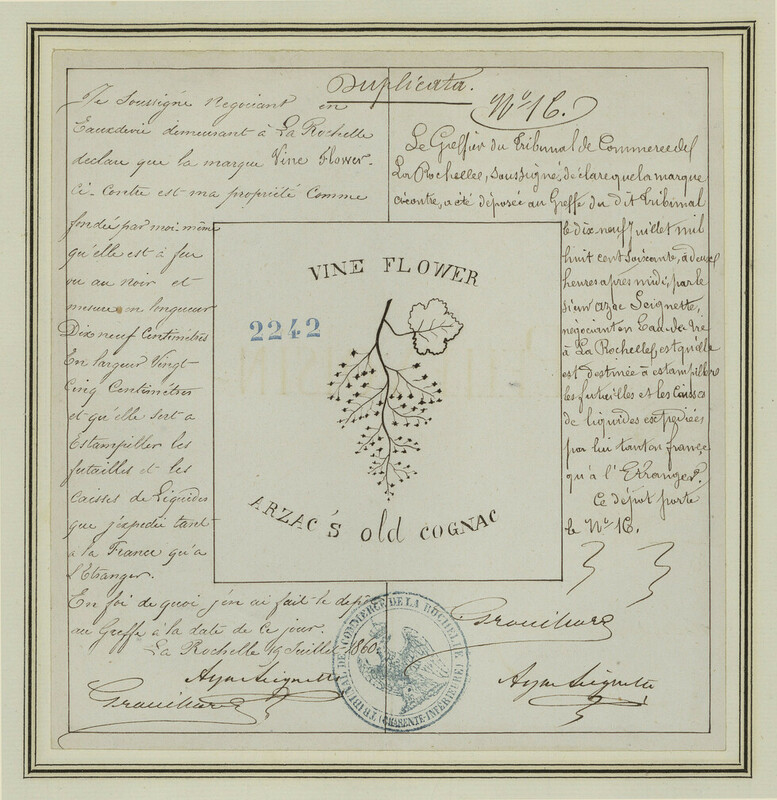 Duplicata.
Je Soussigné Negociant en
Eauxdevie demeurant à La Rochelle
declare que la marque Vine Flower.
Ci-Contre est ma propriété Comme
fondée par moi-même
qu'elle est à feu
ou au noir et
mesure en longueur
Dix neuf Centimètres
En largeur Vingt-
Cinq Centimètres
et qu'elle sert a
Estampiller les
futailles et les
caisses de Liquides
que j'expedie tant
a la France qu'a
l'Etranger.
En foi de quoi j'en ai fait le depot
au Greffe à la date de Ce jour.
La Rochelle 19 Juillet 1860
No. 16.
Le Greffier du Tribunal de Commerce de
La Rochelle, soussigné, déclare que la marque
ci contre, a été déposée au Greffe du dit Tribunal
le dix neuf Juillet mil
huit cent soixante, à deux
heures après midi, par le
sieur Azac Seignette,
négociant en Eau-de-Vie
à La Rochelle, est qu'elle
est destinée à estampiller
les futailles et les Caisses
de liquides expédiées
par lui tant en france
qu'à l'Etranger.
Ce dépot porte
le No. 16.
VINE FLOWER
2242
ARZAC'S old COGNAC
TRIBUNAL DE COMMERCE DE LA ROCHELLE
(CHARENTE-INFERIEURE)